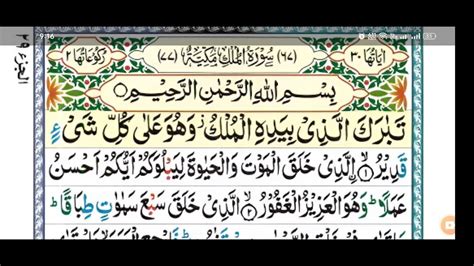 9:16
الجزء ٢٩
اٰیَاتُهَا ٣٠ (٦٧) سُوْرَةُ الْمُلْكِ مَكِّيَّةٌ (٧٧) رُكُوْعَاتُهَا ٢
بِسْمِ اللّٰهِ الرَّحْمٰنِ الرَّحِيْمِ
تَبٰرَكَ الَّذِيْ بِيَدِهِ الْمُلْكُ وَهُوَ عَلٰى كُلِّ شَيْءٍ
قَدِيْرُ ۙ﴿١﴾ اِۨلَّذِيْ خَلَقَ الْمَوْتَ وَالْحَيٰوةَ لِيَبْلُوَكُمْ اَيُّكُمْ اَحْسَنُ
عَمَلًا ؕ وَهُوَ الْعَزِيْزُ الْغَفُوْرُ ۙ﴿٢﴾ الَّذِيْ خَلَقَ سَبْعَ سَمٰوٰتٍ طِبَاقًا ؕ